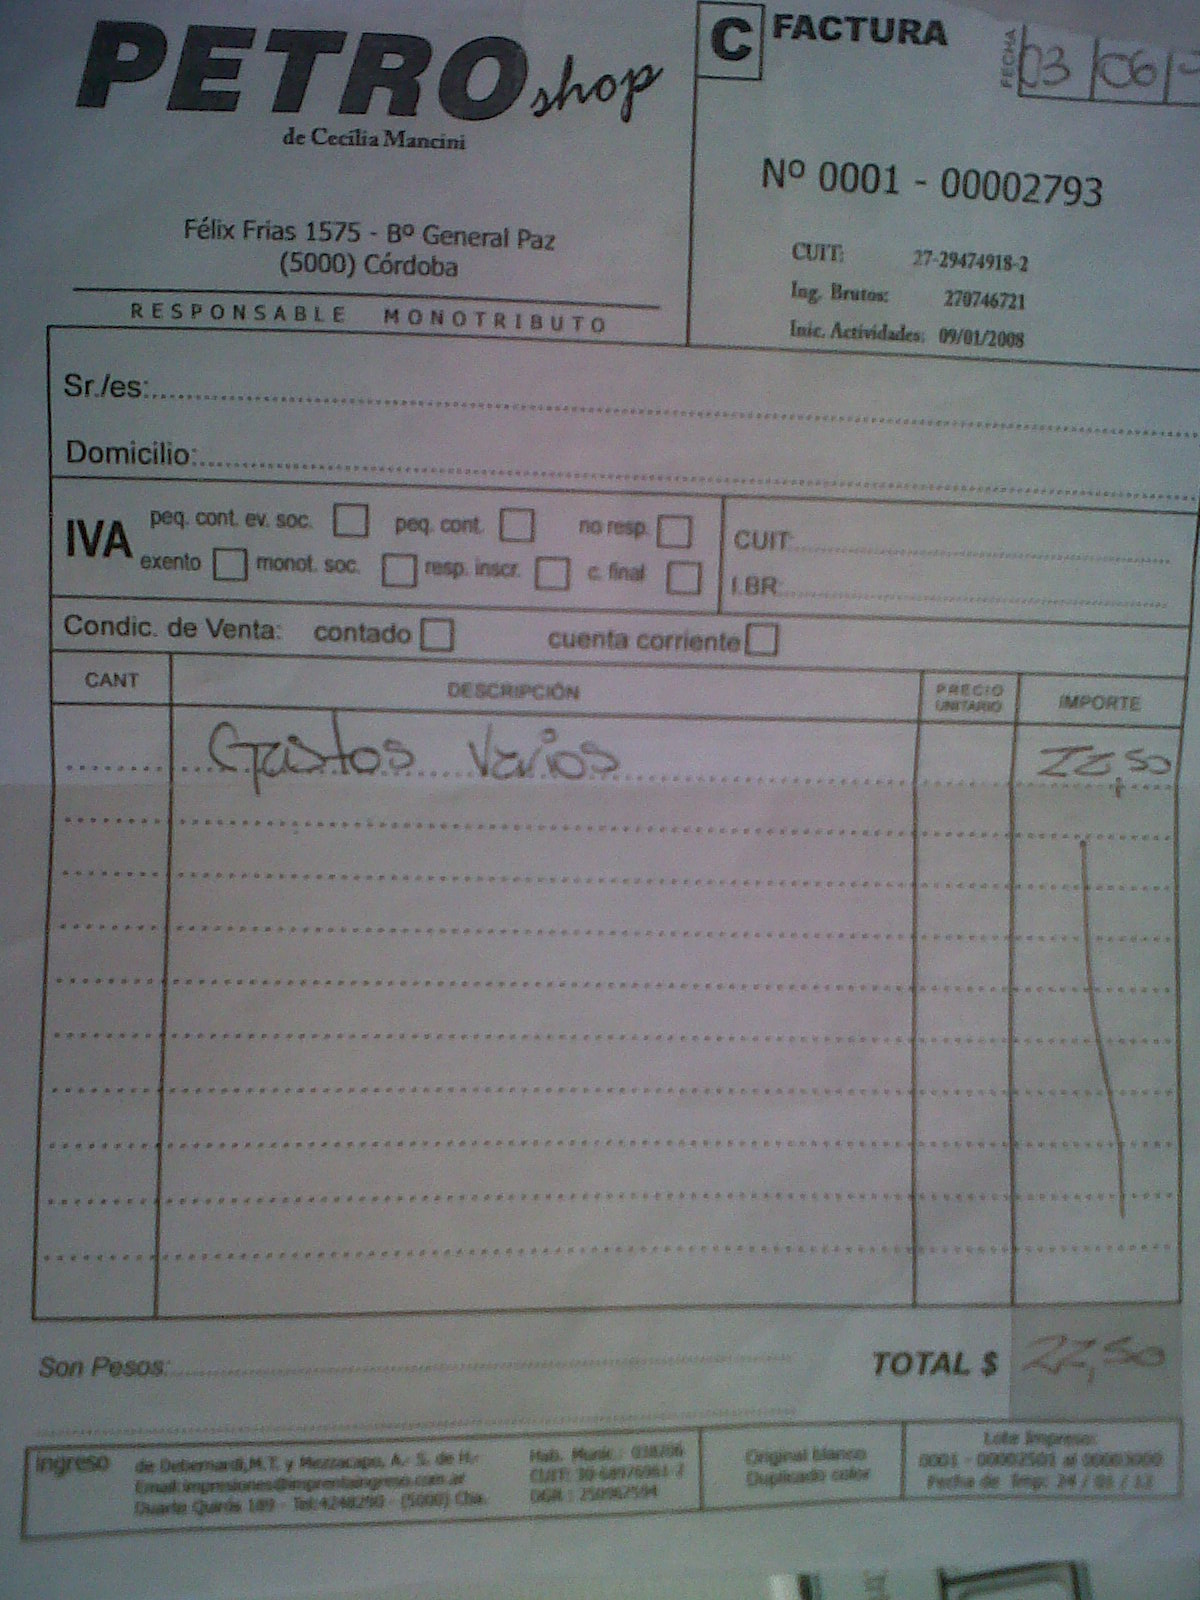 PETRO shop
de Cecilia Mancini
Félix Frias 1575 - Bº General Paz
(5000) Córdoba
RESPONSABLE MONOTRIBUTO
C FACTURA
FECHA 03 06
Nº 0001 - 00002793
CUIT: 27-29474918-2
Ing. Brutos: 270746721
Inic. Actividades: 09/01/2008
Sr./es:
Domicilio:
IVA peq. cont. ev. soc. peq. cont. no resp.
exento monot. soc. resp. inscr. c. final
CUIT:
I.BR:
Condic. de Venta: contado cuenta corriente
CANT DESCRIPCIÓN PRECIO UNITARIO IMPORTE
Gastos Varios 22,50
Son Pesos: TOTAL $ 22,50
Ingreso de Debernardi, M.T. y Mezzacapo, A.- S. de H.-
Email: impresiones@imprentaingreso.com.ar
Duarte Quirós 189 - Tel: 4248290 - (5000) Cba.
Hab. Munic.:
CUIT:
DGR :
Original blanco
Duplicado color
Lote Impreso:
0001 - 00002501 al 00003000
Fecha de Imp: